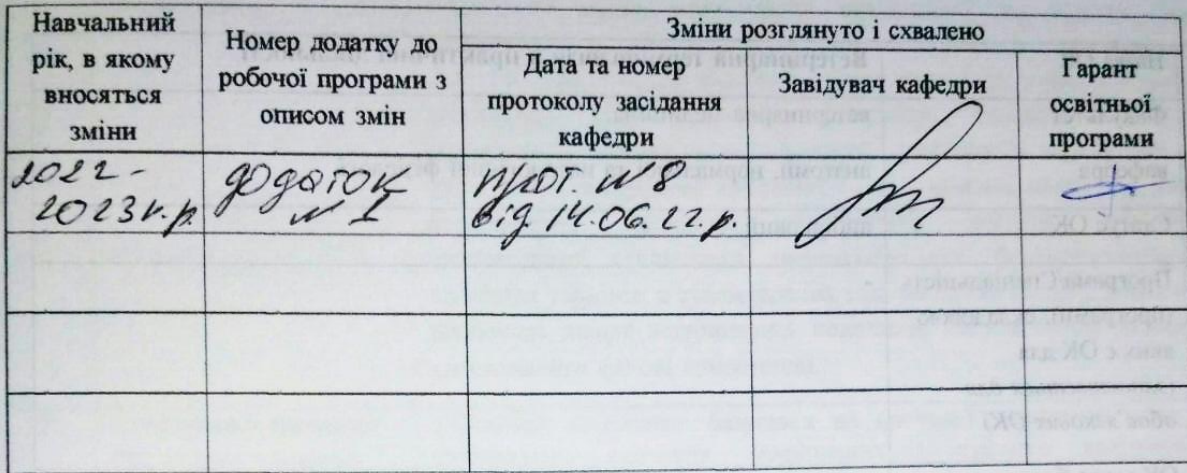 Навчальний
рік, в якому
вносяться
зміни
Номер додатку до
робочої програми з
описом змін
Зміни розглянуто і схвалено
Дата та номер
протоколу засідання
кафедри
Завідувач кафедри
Гарант
освітньої
програми
2022-
2023 н.р.
додаток
№ 1
прот №8
від 14.06.22 р.